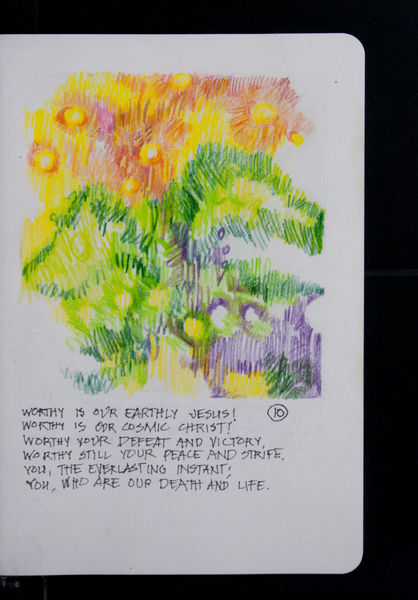 WORTHY IS OUR EARTHLY JESUS! 10
WORTHY IS OUR COSMIC CHRIST!
WORTHY YOUR DEFEAT AND VICTORY,
WORTHY STILL YOUR PEACE AND STRIFE,
YOU, THE EVERLASTING INSTANT;
YOU, WHO ARE OUR DEATH AND LIFE.